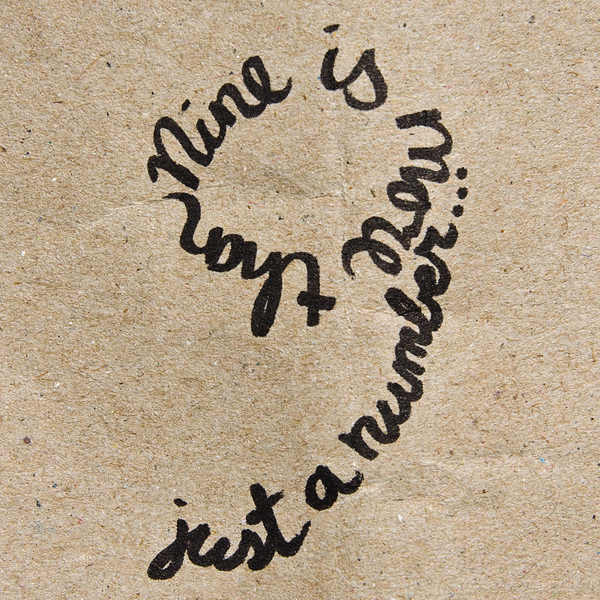 Nine is more than
just a number...